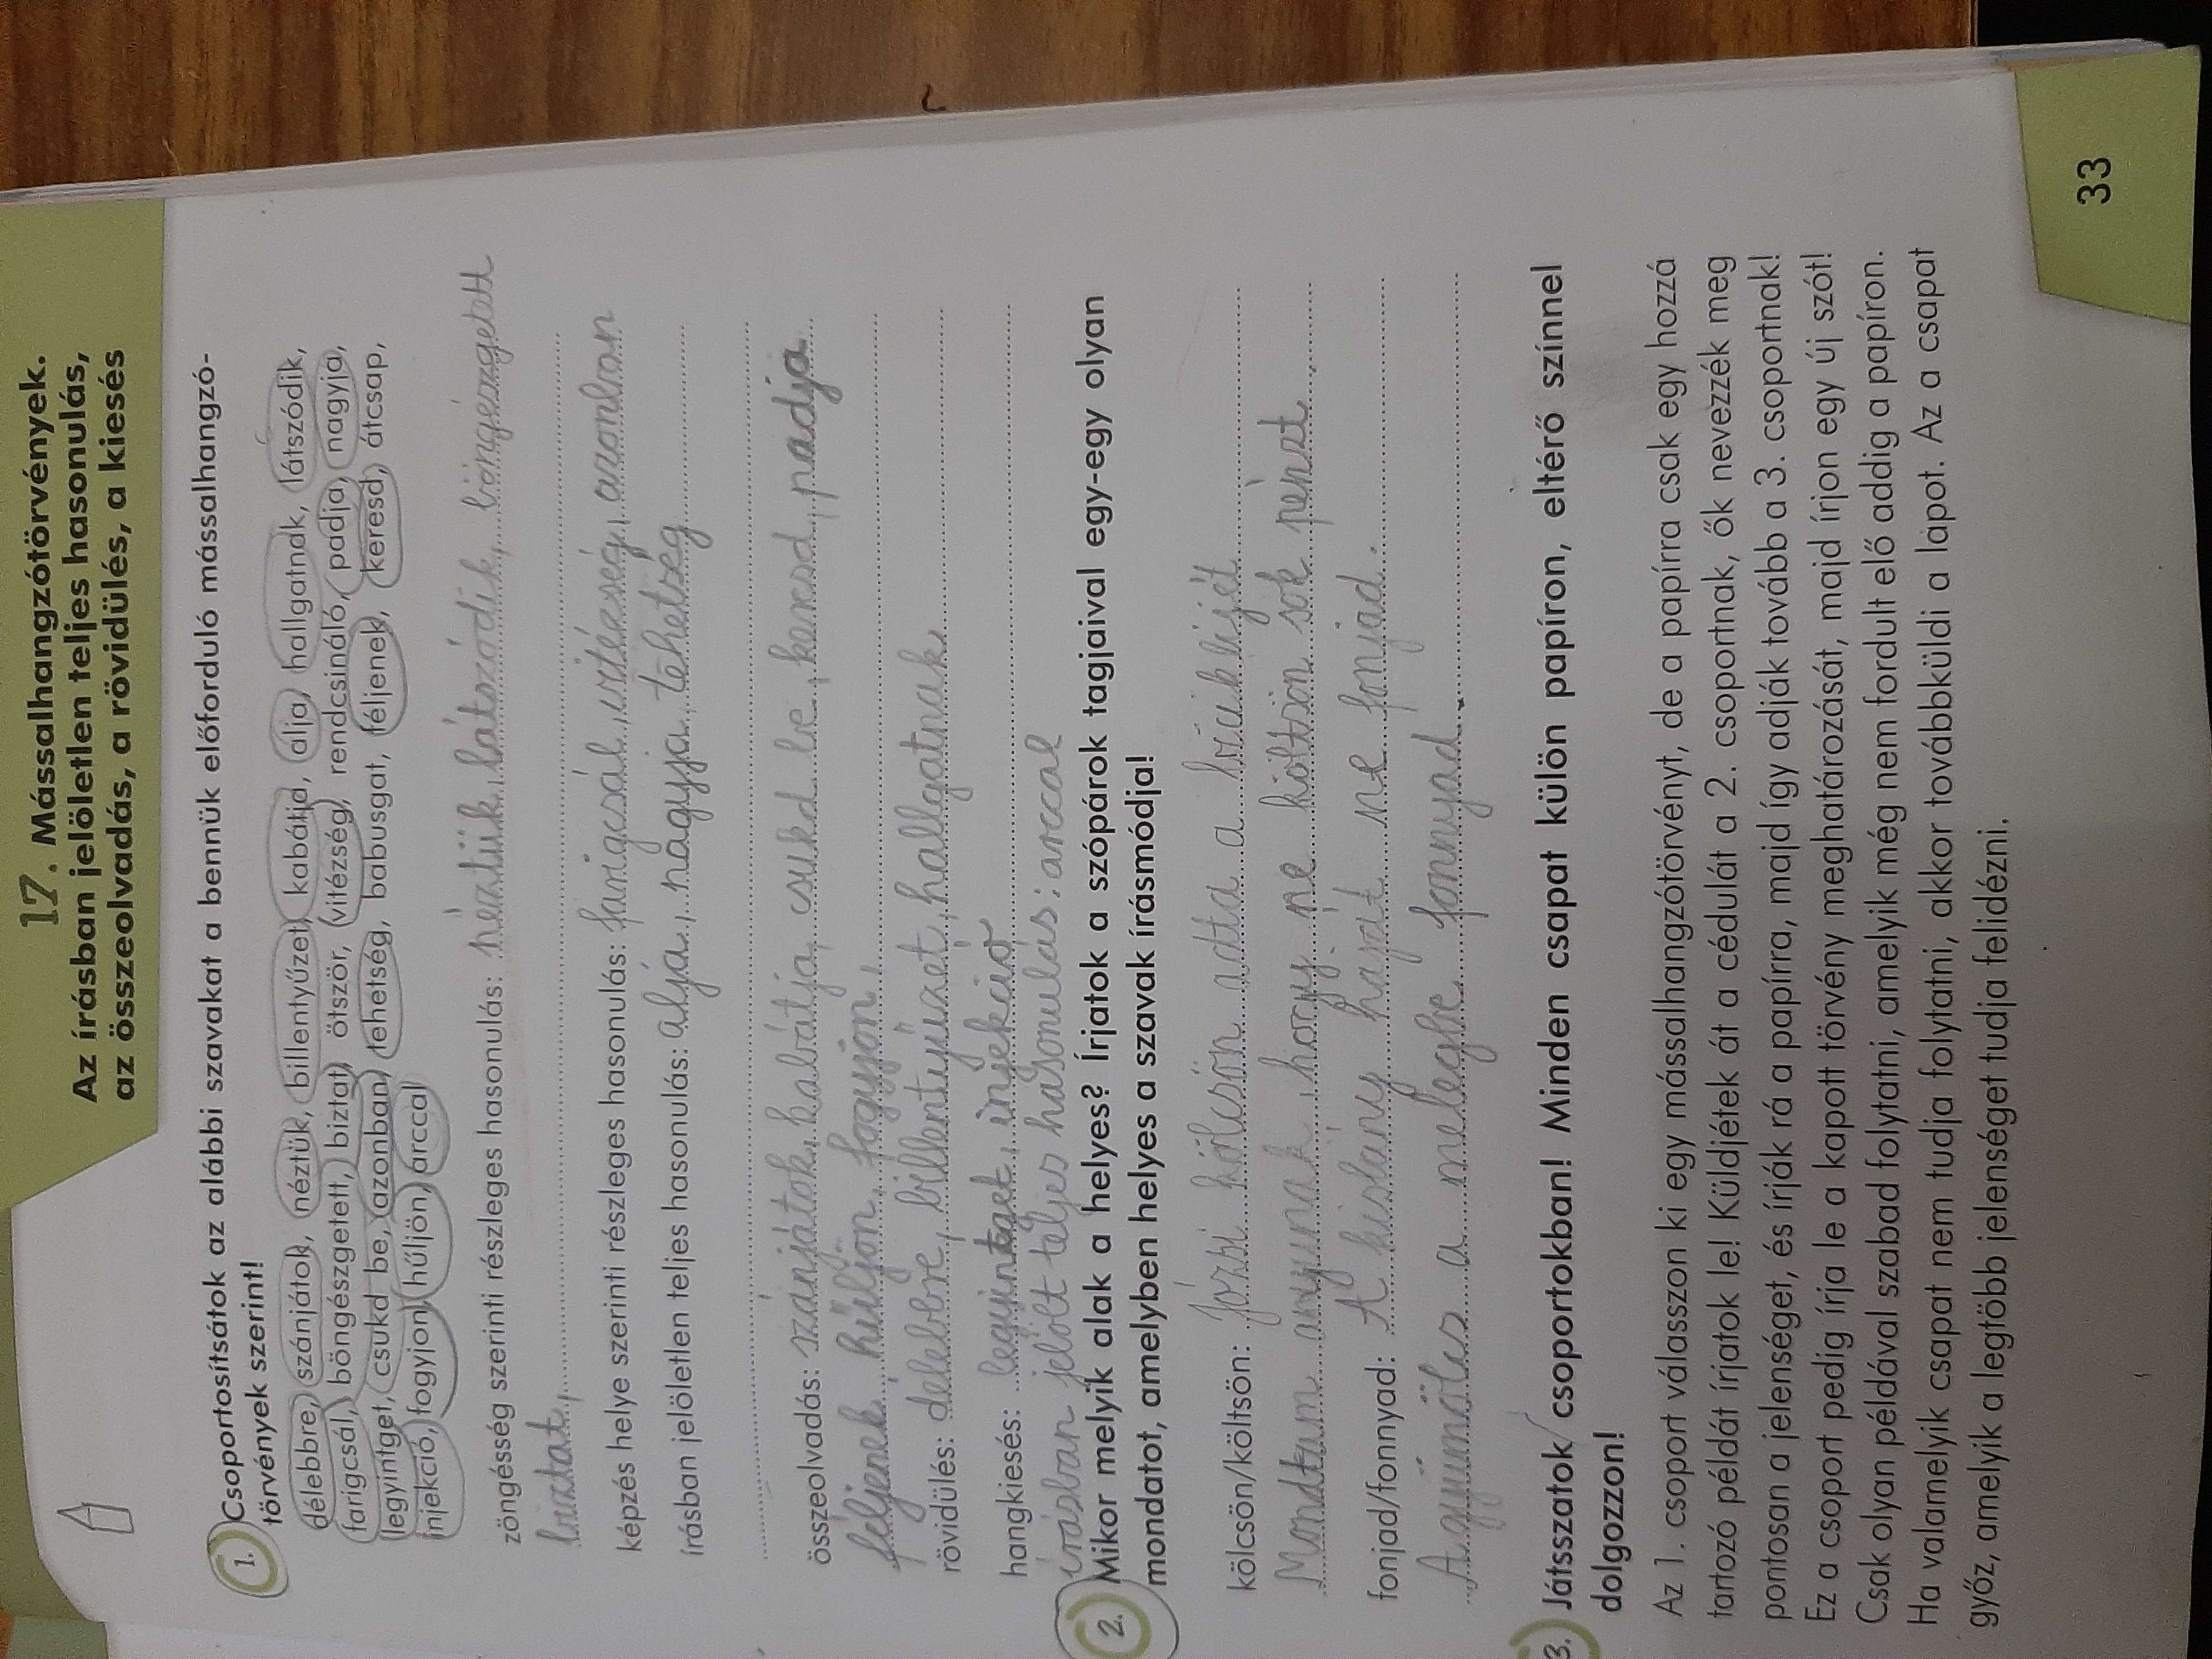 17. Mássalhangzótörvények.
Az írásban jelöletlen teljes hasonulás,
az összeolvadás, a rövidülés, a kiesés
1. Csoportosítsátok az alábbi szavakat a bennük előforduló mássalhangzó-
törvények szerint!
délebbre, szánjátok, néztük, billentyűzet, kabátja, alja, hallgatnak, látszódik,
farigcsál, böngészgetett, biztat, ötször, vitézség, rendcsináló, padja, nagyja,
legyintget, csukd be, azonban, tehetség, babusgat, féljenek, keresd, átcsap,
injekció, fogyjon, hűljön, arccal
zöngésség szerinti részleges hasonulás: néztük, látszódik, böngészgetett
biztat,
képzés helye szerinti részleges hasonulás: farigcsál, vitézség, azonban
írásban jelöletlen teljes hasonulás: alja, nagyja, tehetség
összeolvadás: szánjátok, kabátja, csukd be, keresd, padja
féljenek, hűljön, fogyjon,
rövidülés: délebbre, billentyűzet, hallgatnak
hangkiesés: legyintget, injekció
írásban jelölt teljes hasonulás: arccal
2. Mikor melyik alak a helyes? Írjatok a szópárok tagjaival egy-egy olyan
mondatot, amelyben helyes a szavak írásmódja!
kölcsön/költsön: Józsi kölcsön adta a biciklijét
Mondtam anyunak, hogy ne költsön sok pénzt.
fonjad/fonnyad: A kislány haját ne fonjad.
A gyümölcs a melegbe fonnyad.
3. Játsszatok csoportokban! Minden csapat külön papíron, eltérő színnel
dolgozzon!
Az 1. csoport válasszon ki egy mássalhangzótörvényt, de a papírra csak egy hozzá
tartozó példát írjatok le! Küldjétek át a cédulát a 2. csoportnak, ők nevezzék meg
pontosan a jelenséget, és írják rá a papírra, majd így adják tovább a 3. csoportnak!
Ez a csoport pedig írja le a kapott törvény meghatározását, majd írjon egy új szót!
Csak olyan példával szabad folytatni, amelyik még nem fordult elő addig a papíron.
Ha valamelyik csapat nem tudja folytatni, akkor továbbküldi a lapot. Az a csapat
győz, amelyik a legtöbb jelenséget tudja felidézni.
33